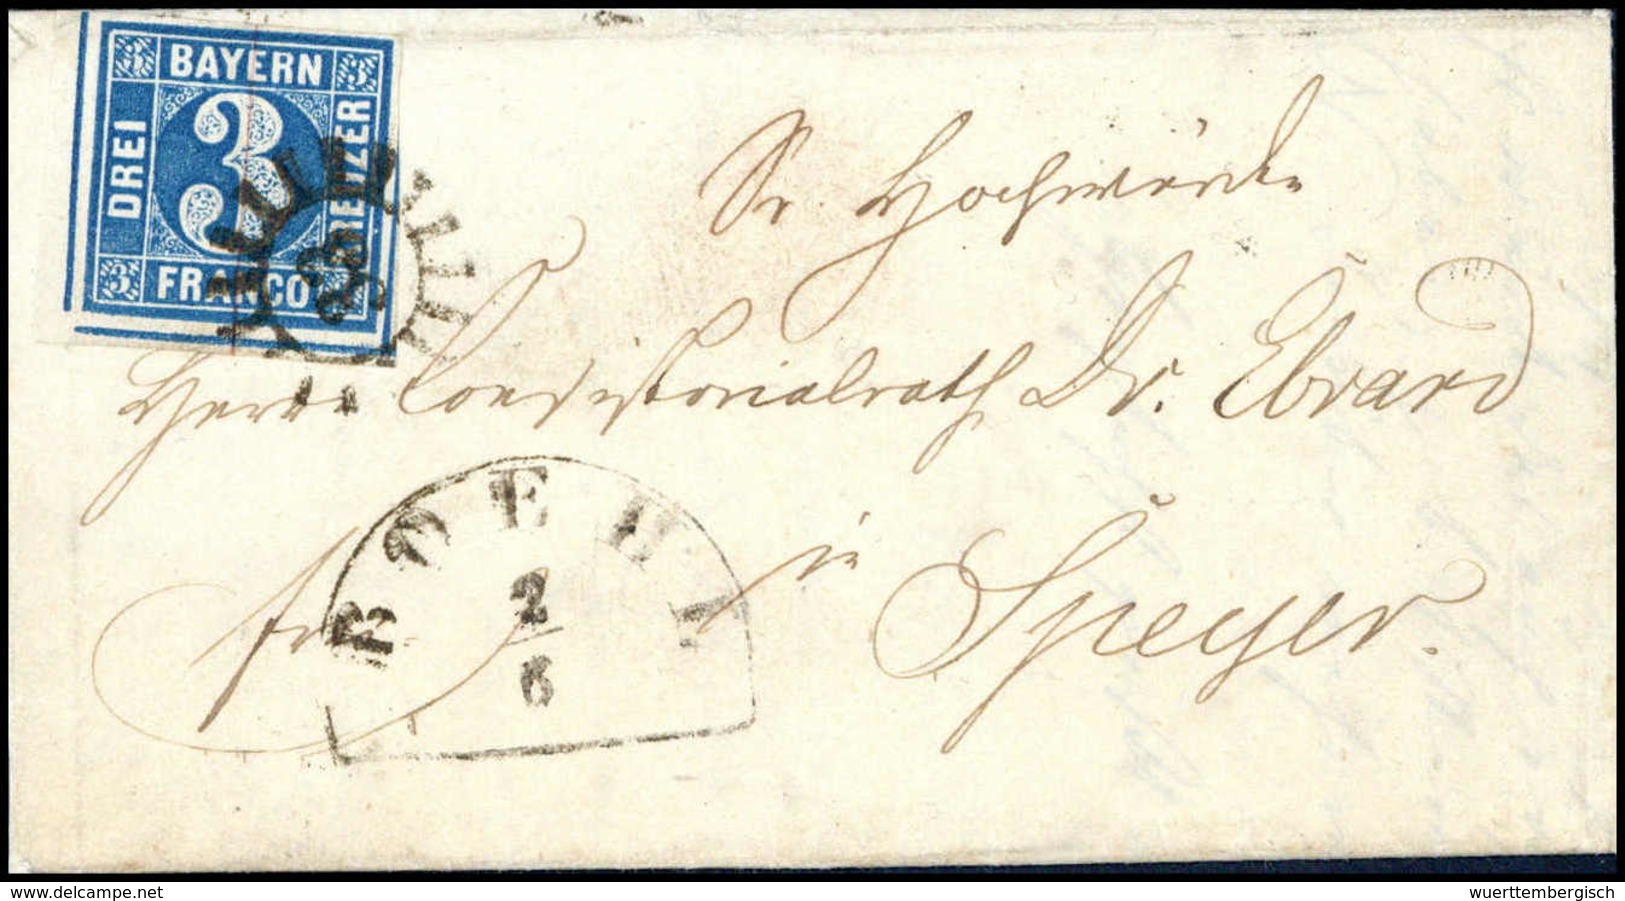 BAYERN
DREI
3
KREUZER
FRANCO
Sr. Hochwürden
Herrn Consistorialrath Dr. Ebrard
in
fr.
Speyer.
BOEHL
2
6
www.delcampe.net
wuerttembergisch